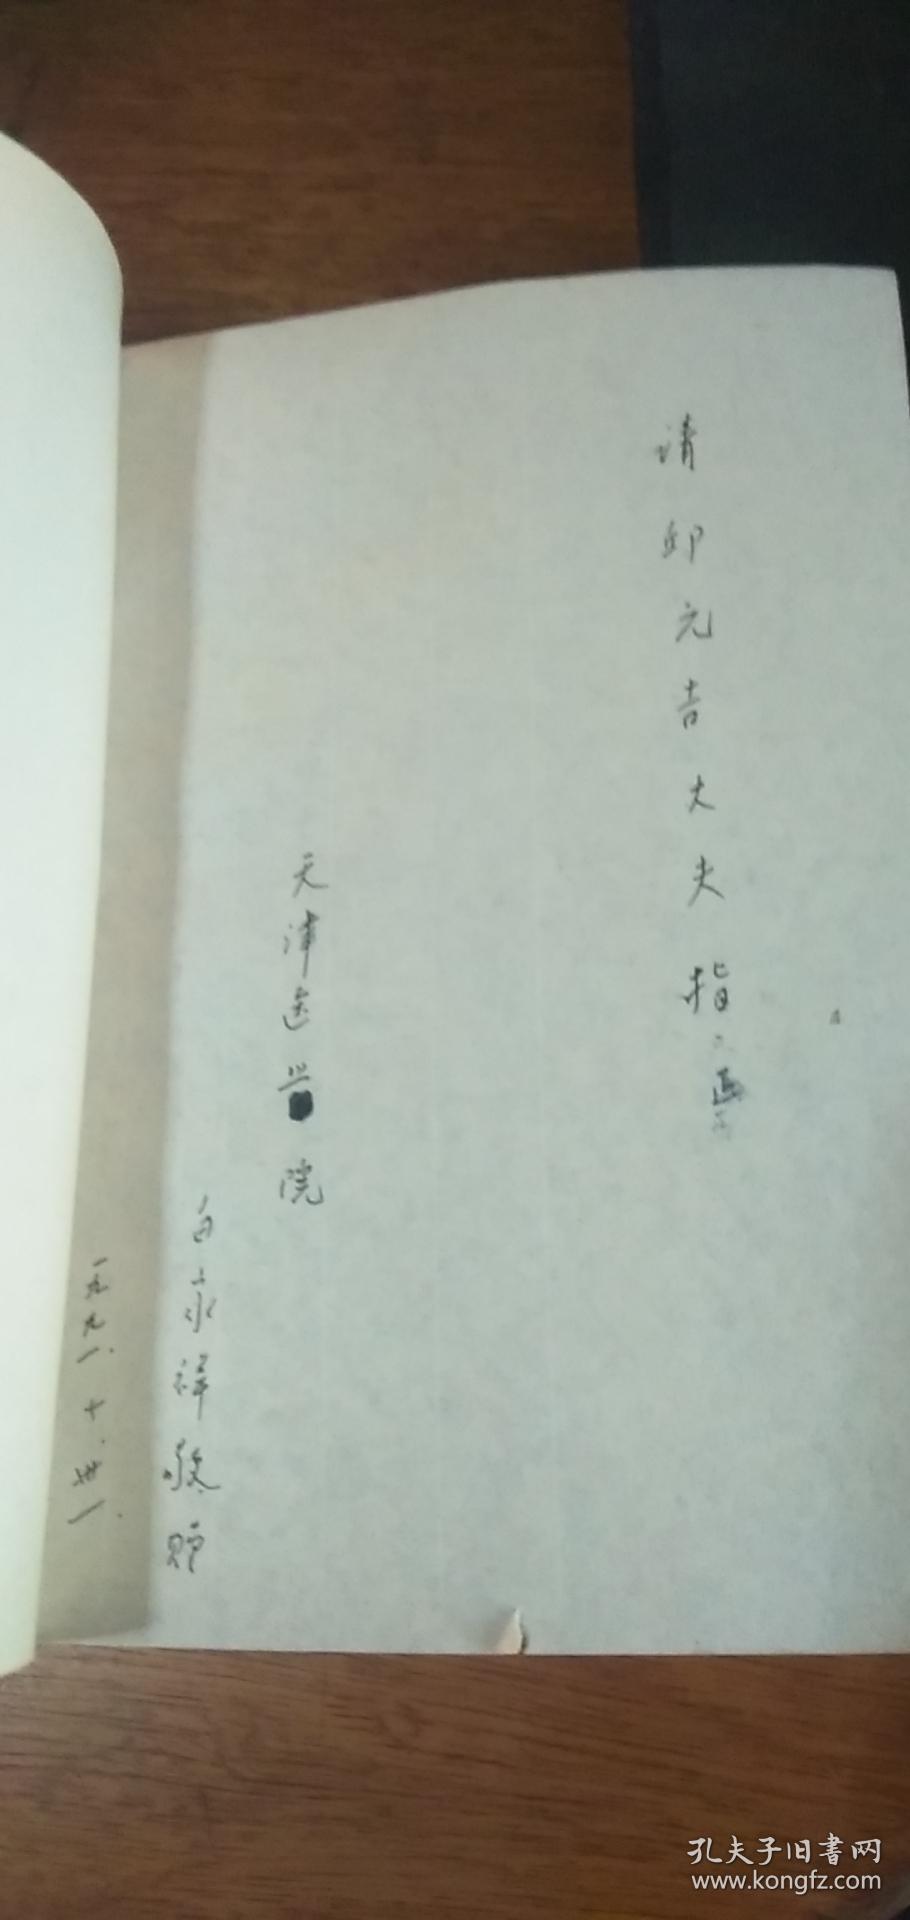 请邱元吉大夫指正
天津医学院
白永祥敬赠
一九九一.十.卅一.
孔夫子旧書网
www.kongfz.com